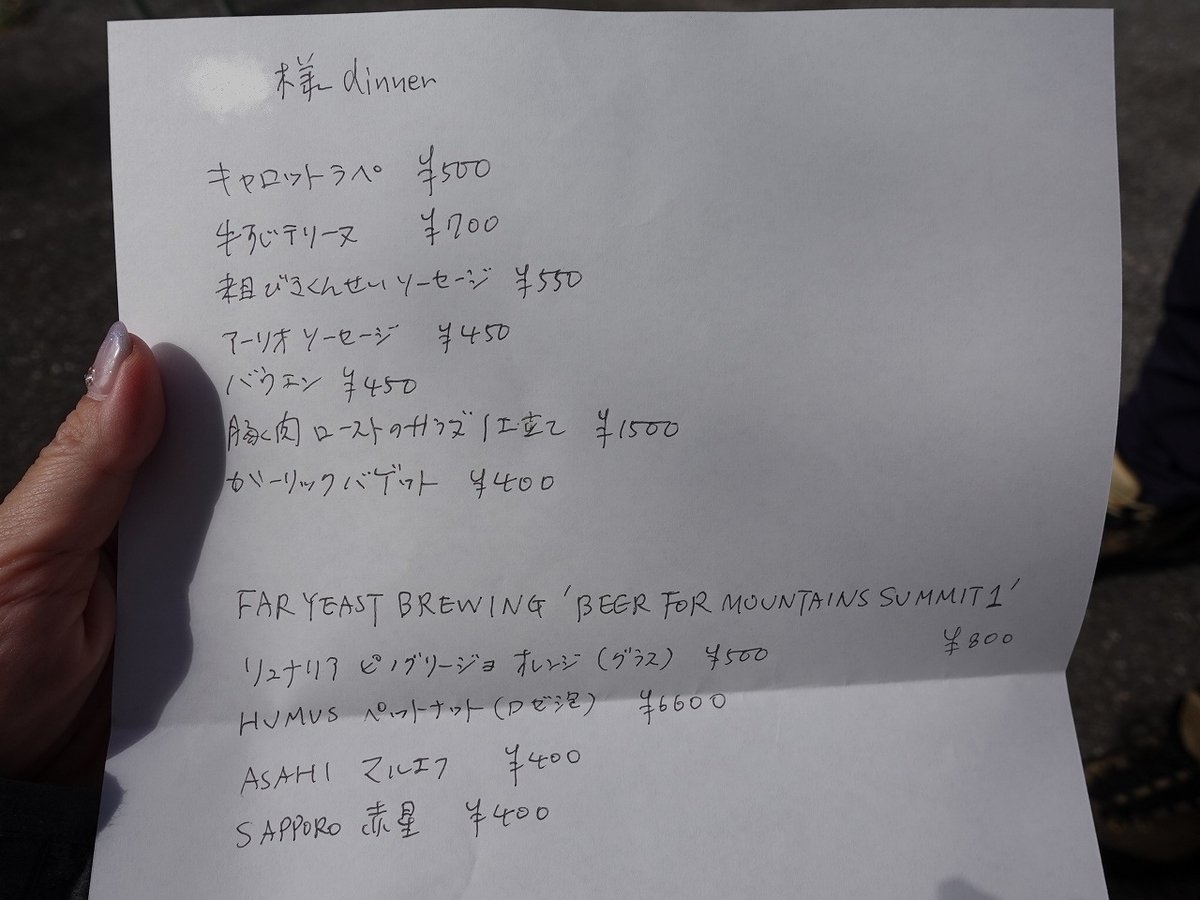 様 dinner
キャロットラペ ¥500
牛すじテリーヌ ¥700
粗びきくんせいソーセージ ¥550
アーリオソーセージ ¥450
バウエン ¥450
豚肉ローストのサラダ仕立て ¥1500
ガーリックバゲット ¥400
FAR YEAST BREWING 'BEER FOR MOUNTAINS SUMMIT1'
¥800
リュナリア ピノグリージョ オレンジ (グラス) ¥500
HUMUS ペットナット (ロゼ泡) ¥6600
ASAHI マルエフ ¥400
SAPPORO 赤星 ¥400